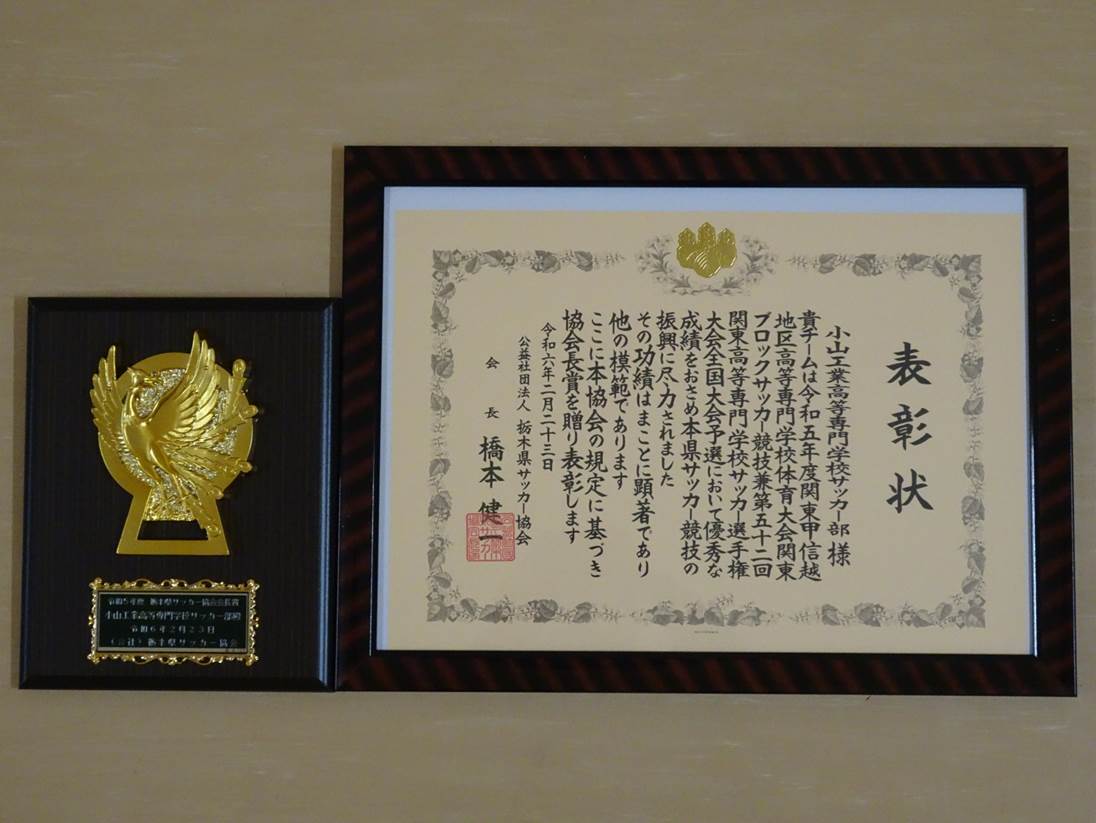 表彰状
小山工業高等専門学校サッカー部様
貴チームは令和五年度関東甲信越
地区高等専門学校体育大会関東
ブロックサッカー競技兼第五十二回
関東高等専門学校サッカー選手権
大会全国大会予選において優秀な
成績をおさめ本県サッカー競技の
振興に尽力されました
その功績はまことに顕著であり
他の模範であります
ここに本協会の規定に基づき
協会長賞を贈り表彰します
令和六年二月二十三日
公益社団法人 栃木県サッカー協会
会長 橋本健一
令和5年度 栃木県サッカー協会会長賞
小山工業高等専門学校サッカー部殿
令和6年2月23日
(公社)栃木県サッカー協会